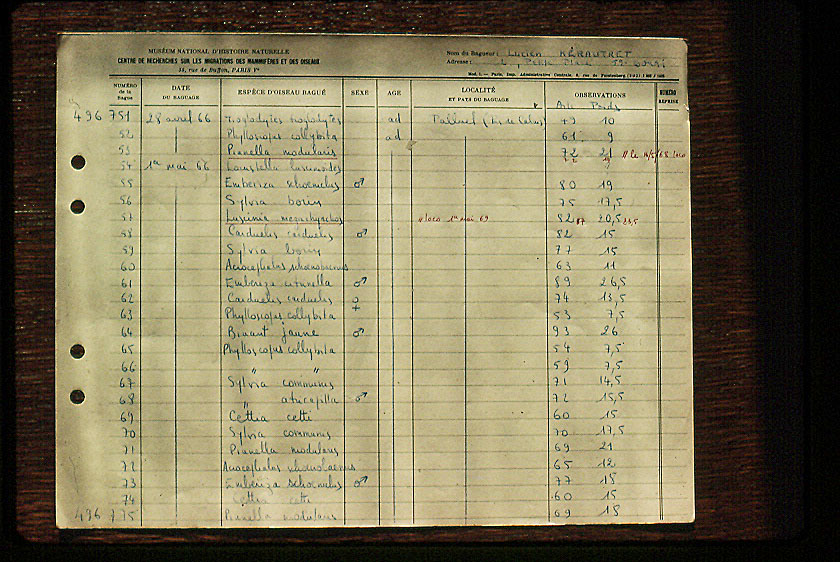 MUSÉUM NATIONAL D'HISTOIRE NATURELLE
CENTRE DE RECHERCHES SUR LES MIGRATIONS DES MAMMIFÈRES ET DES OISEAUX
55, rue de Buffon, PARIS Vᵉ
Nom du Bagueur: Lucien KÉRAUTRET
Adresse:
NUMÉRO de la Bague DATE DU BAGUAGE ESPÈCE D'OISEAU BAGUÉ SEXE AGE LOCALITÉ ET PAYS DU BAGUAGE OBSERVATIONS NUMÉRO REPRISE
Poids
496 751 28 avril 66 Troglodytes troglodytes ad 10
52 Phylloscopus collybita ad 61 9
53 Prunella modularis 72 21
54 1er mai 66 Locustella luscinioides
55 Emberiza schoeniclus ♂ 80 19
56 Sylvia borin 75 17,5
57 Luscinia megarhynchos loco 1er mai 69 82 87 20,5 23,5
58 Carduelis carduelis ♂ 82 15
59 Sylvia borin 77 15
60 Acrocephalus schoenobaenus 63 11
61 Emberiza citrinella ♂ 89 26,5
62 Carduelis carduelis ♀ 74 13,5
63 Phylloscopus collybita 53 7,5
64 Bruant jaune ♂ 93 26
65 Phylloscopus collybita 54 7,5
66 " " 59 7,5
67 Sylvia communis 71 14,5
68 " atricapilla ♂ 72 15,5
69 Cettia cetti 60 15
70 Sylvia communis 70 17,5
71 Prunella modularis 69 21
72 Acrocephalus schoenobaenus 65 12
73 Emberiza schoeniclus ♂ 77 18
74 Cettia cetti 60 15
496 775 Prunella modularis 69 18